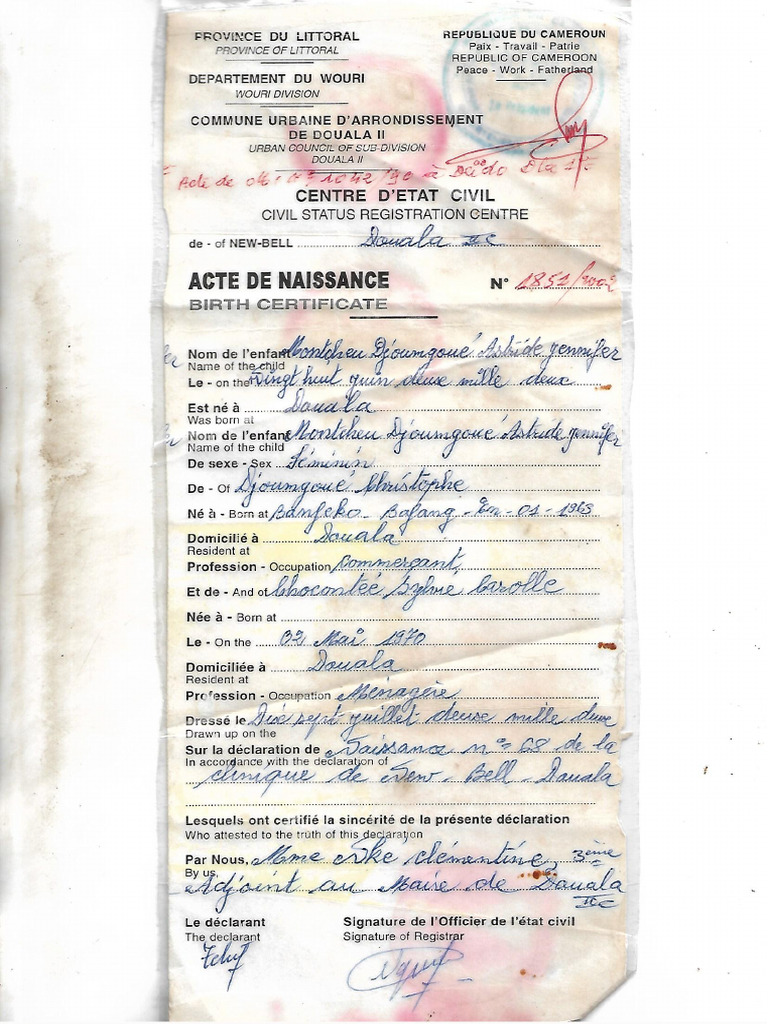 PROVINCE DU LITTORAL
PROVINCE OF LITTORAL
DEPARTEMENT DU WOURI
WOURI DIVISION
COMMUNE URBAINE D'ARRONDISSEMENT
DE DOUALA II
URBAN COUNCIL OF SUB-DIVISION
DOUALA II
REPUBLIQUE DU CAMEROUN
Paix - Travail - Patrie
REPUBLIC OF CAMEROON
Peace - Work - Fatherland
Acte de n° 1042/90 à Deïdo Dla
CENTRE D'ETAT CIVIL
CIVIL STATUS REGISTRATION CENTRE
de - of NEW-BELL Douala IIe
ACTE DE NAISSANCE N° 1851/2002
BIRTH CERTIFICATE
Nom de l'enfant Montcheu Djoumgoué Astride Jennifer
Name of the child
Le - on the Vingt huit juin deux mille deux
Est né à Douala
Was born at
Nom de l'enfant Montcheu Djoumgoué Astride Jennifer
Name of the child
De sexe - Sex Féminin
De - Of Djoumgoué Christophe
Né à - Born at Banfeko - Bafang - En - 01 - 1963
Domicilié à Douala
Resident at
Profession - Occupation Commerçant
Et de - And of Chocontée Sylvie Carolle
Née à - Born at
Le - On the 02 Mai 1970
Domiciliée à Douala
Resident at
Profession - Occupation Ménagère
Dressé le Dix sept juillet deux mille deux
Drawn up on the
Sur la déclaration de Naissance n° 68 de la
In accordance with the declaration of
clinique de New-Bell-Douala
Lesquels ont certifié la sincérité de la présente déclaration
Who attested to the truth of this declaration
Par Nous, Mme Nké clémentine, 3ème
By us,
Adjoint au Maire de Douala
IIe
Le déclarant Signature de l'Officier de l'état civil
The declarant Signature of Registrar